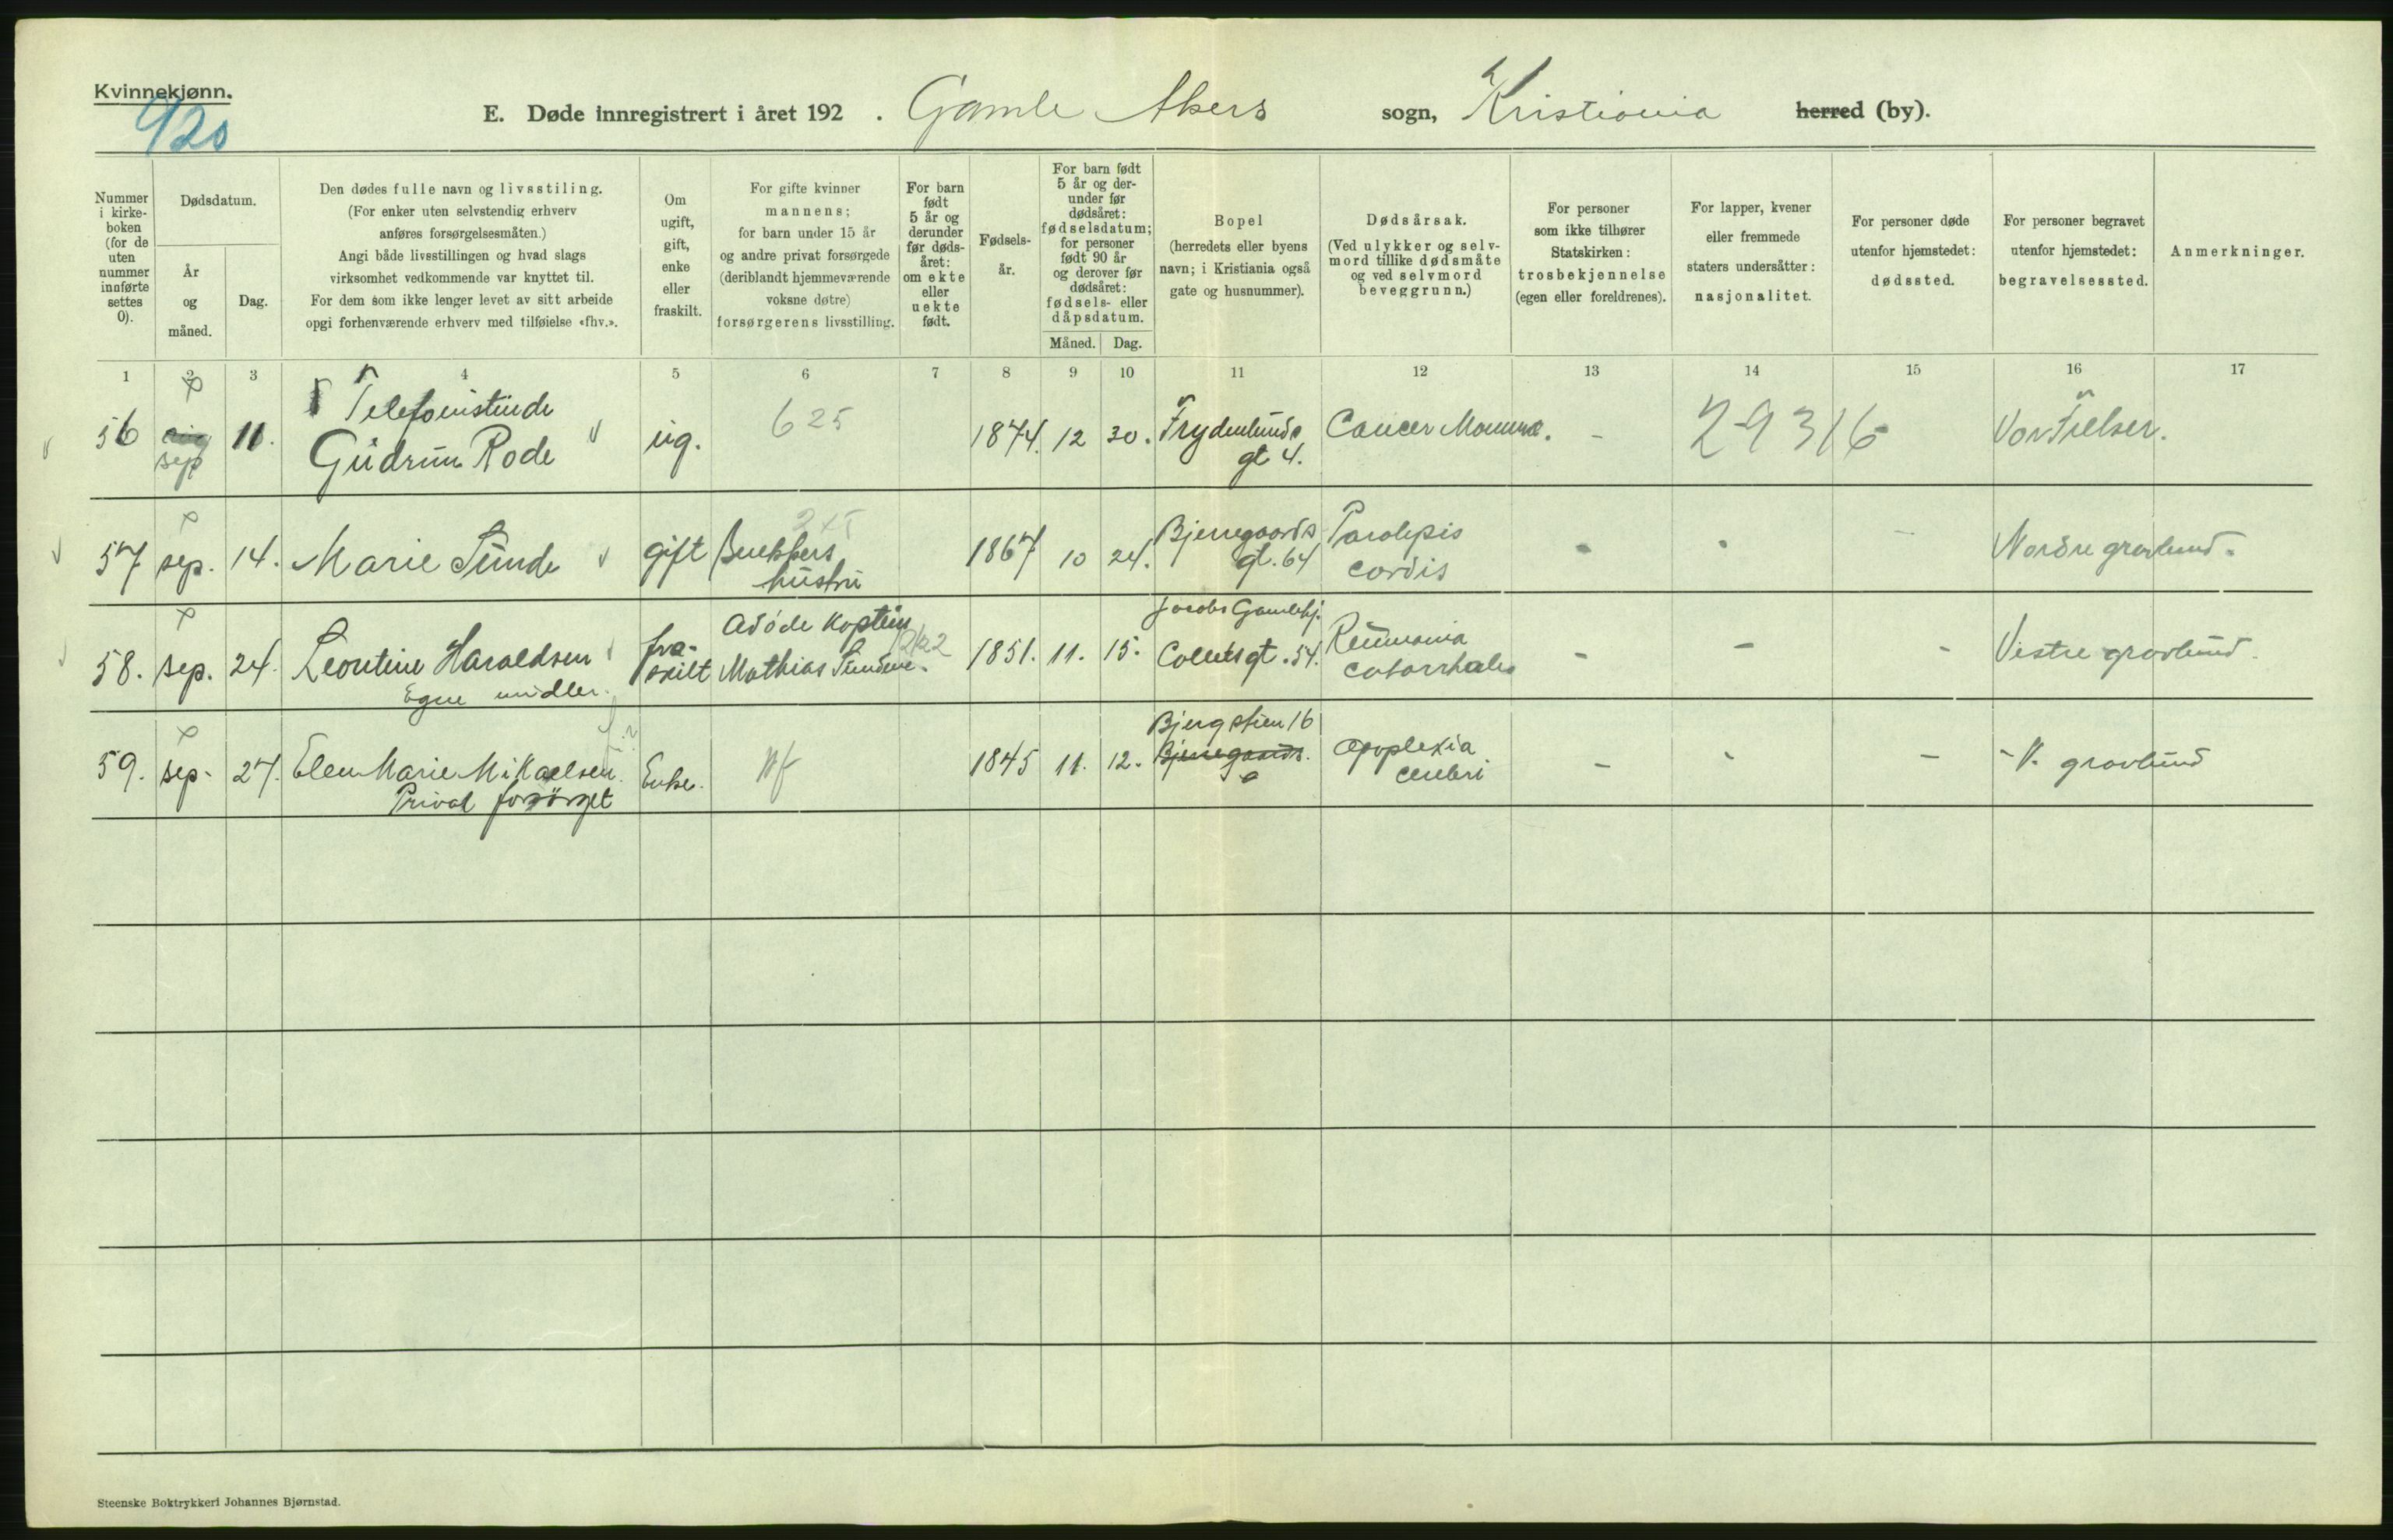 Kvinnekjønn.
920
E. Døde innregistrert i året 192 . Gamle Akers sogn, Kristiania herred (by).
Nummer i kirke- boken (for de uten nummer innførte settes 0).
Dødsdatum.
År og måned.
Dag.
Den dødes fulle navn og livsstiling.
(For enker uten selvstendig erhverv
anføres forsørgelsesmåten.)
Angi både livsstillingen og hvad slags
virksomhet vedkommende var knyttet til.
For dem som ikke lenger levet av sitt arbeide
opgi forhenværende erhverv med tilføielse «fhv.».
Om ugift, gift, enke eller fraskilt.
For gifte kvinner
mannens;
for barn under 15 år
og andre privat forsørgede
(deriblandt hjemmeværende
voksne døtre)
forsørgerens livsstilling.
For barn født 5 år og derunder før døds- året: om ekte eller uekte født.
Fødsels- år.
For barn født 5 år og der- under før dødsåret: fødselsdatum; for personer født 90 år og derover før dødsåret: fødsels- eller dåpsdatum.
Måned. Dag.
Bopel
(herredets eller byens
navn; i Kristiania også
gate og husnummer).
Dødsårsak.
(Ved ulykker og selv-
mord tillike dødsmåte
og ved selvmord
beveggrunn.)
For personer
som ikke tilhører
Statskirken:
trosbekjennelse
(egen eller foreldrenes).
For lapper, kvener
eller fremmede
staters undersåtter:
nasjonalitet.
For personer døde
utenfor hjemstedet:
dødssted.
For personer begravet
utenfor hjemstedet:
begravelsessted.
Anmerkninger.
1 2 3 4 5 6 7 8 9 10 11 12 13 14 15 16 17
56 aug sep 11. Telefonistinde Gudrun Rode ug. 625 1874. 12 30. Frydenlunds gt 4. Cancer Mamma. - 29316 Vor Frelser.
57 sep. 14. Marie Sunde gift hustru 1867 10 24. Bjerregaards gt. 64 Paralysis cordis - - - Nordre gravlund.
58. sep. 24. Leontine Haraldsen Egne midler. fra- skilt Mathias 1851. 11. 15. Jacobs Gamlehj. Colletsgt. 54. catarrhalis - - - Vestre gravlund.
59. sep. 27. Elen Marie Mikaelsen. Privat forsørget Enke. 1845 11. 12. Bjergstien 16 Bjerregaards. Apoplexia cerebri - - - - V. gravlund
Steenske Boktrykkeri Johannes Bjørnstad.